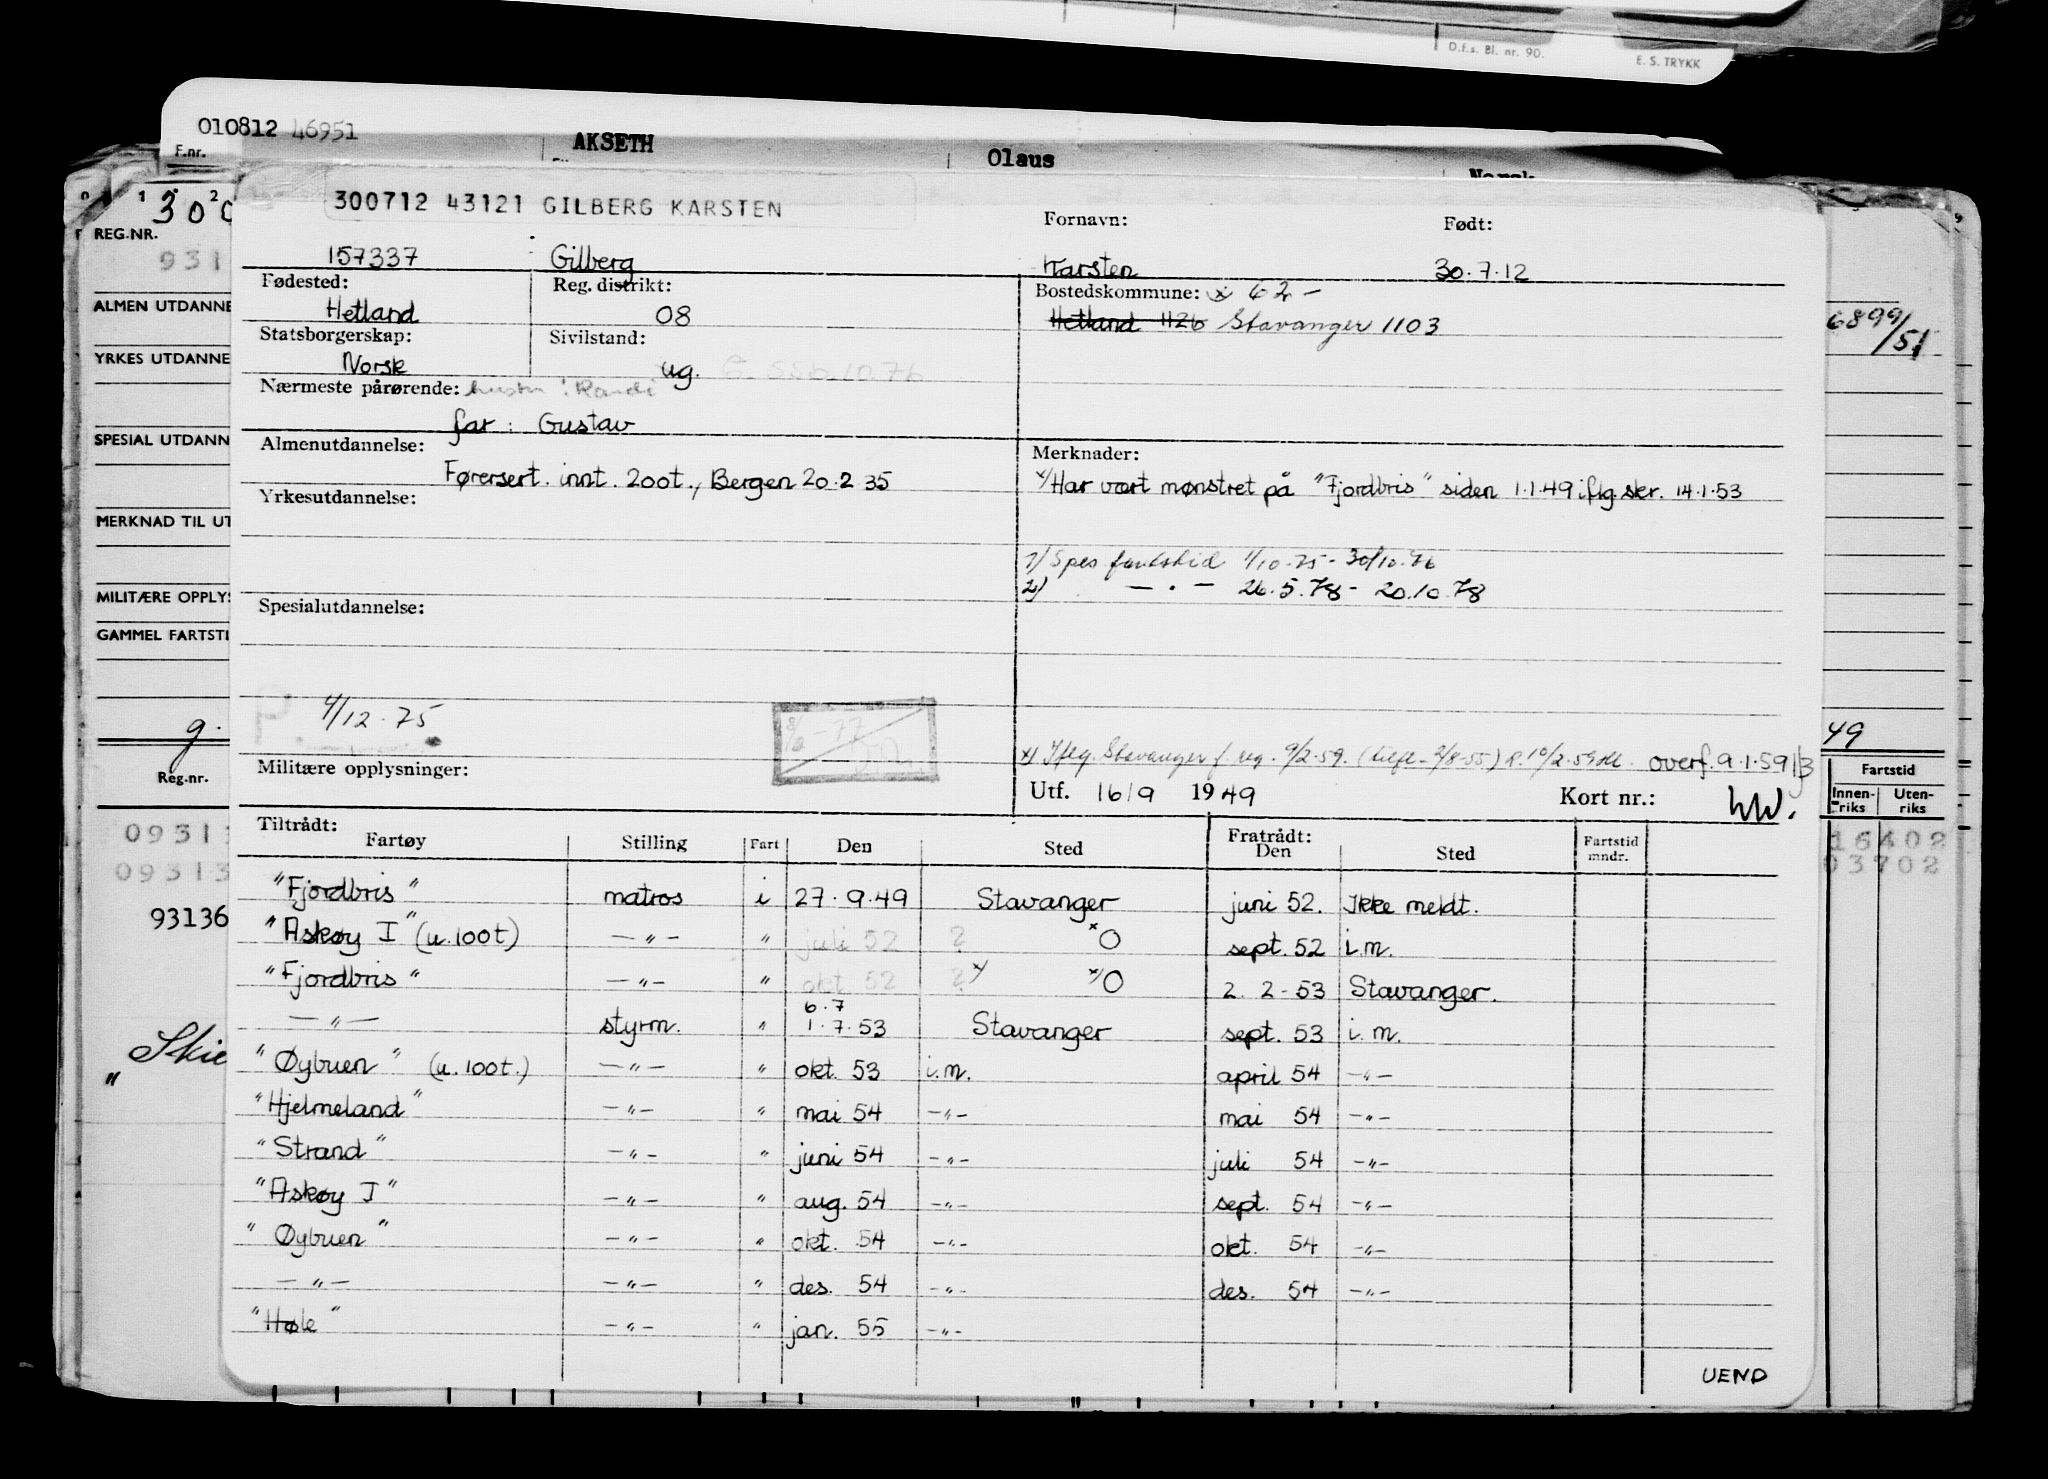 D.f.s. Bl. nr. 90.
E. S. TRYKK
010812 46951
AKSETH
Olaus
F.nr.
Norsk
300712 43121 GILBERG KARSTEN
Fornavn:
Født:
REG.NR.
931
157337 Gilberg Karsten 30.7.12
Fødested:
Reg. distrikt:
Bostedskommune: x 62 -
ALMEN UTDANNE
Hetland 08 Hetland 1126 Stavanger 1103
6899/51
Statsborgerskap:
Sivilstand:
YRKES UTDANNE
Norsk ug.
Nærmeste pårørende: hustru: Randi
far: Gustav
SPESIAL UTDANN
Almenutdannelse:
Merknader:
Førersert. innt. 200t., Bergen 20.2 35
x/ Har vært mønstret på "Fjordbris" siden 1.1.49 iflg skr. 14.1.53
Yrkesutdannelse:
MERKNAD TIL UT
1) Spes fartstid 1/10.75 - 30/10.76
2) — . — 26.5.78 - 20.10.78
MILITÆRE OPPLYS
Spesialutdannelse:
GAMMEL FARTSTI
4/12.75
g.
49
x) Iflg. Stavanger f. reg. 9/2-59.
overf. 9.1.59
Militære opplysninger:
Reg.nr.
Utf. 16/9 1949
Kort nr.:
Fartstid
Innen-riks
Uten-riks
Tiltrådt:
Fratrådt:
Fartøy Stilling Fart Den Sted Den Sted Fartstid mndr.
16402
03702
"Fjordbris" matros i 27.9.49 Stavanger juni 52. Ikke meldt.
"Askøy I" (u.100t) —"— " juli 52 ? xO sept. 52 i.m.
"Fjordbris" —"— " okt 52 ? x/ x/O 2. 2-53 Stavanger.
6.7
—"— styrm. " 1.7.53 Stavanger sept. 53 i.m.
"Øybuen" (u.100t.) —"— " okt. 53 i.m. april 54 —"—
"Hjelmeland" —"— " mai 54 —"— mai 54 —"—
"Strand" —"— " juni 54 —"— juli 54 —"—
"Askøy I" —"— " aug. 54 —"— sept. 54 —"—
"Øybuen" —"— " okt. 54 —"— okt. 54 —"—
—"— —"— " des. 54 —"— des. 54 —"—
"Høle" —"— " jan. 55 —"—
UEND
0931
09313
93136
Skie
"